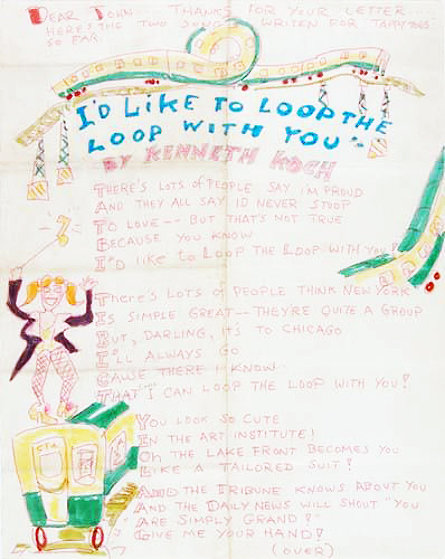 DEAR JOHN THANKS FOR YOUR LETTER
HERE'S THE TWO SONGS WRITEN FOR TAPPY TOES
SO FAR
I'D LIKE TO LOOP THE
LOOP WITH YOU"
BY KENNETH KOCH
THERE'S LOTS OF PEOPLE SAY I'M PROUD
AND THEY ALL SAY ID NEVER STOOP
TO LOVE -- BUT THAT'S NOT TRUE
BECAUSE YOU KNOW
I'D LIKE TO LOOP THE LOOP WITH YOU!
THERE'S LOTS OF PEOPLE THINK NEW YORK
IS SIMPLE GREAT -- THEY'RE QUITE A GROUP
BUT, DARLING, IT'S TO CHICAGO
I'LL ALWAYS GO
CAUSE THERE I KNOW
THAT I CAN LOOP THE LOOP WITH YOU!
YOU LOOK SO CUTE
IN THE ART INSTITUTE!
OH THE LAKE FRONT BECOMES YOU
LIKE A TAILORED SUIT!
CTA
AND THE TRIBUNE KNOWS ABOUT YOU
AND THE DAILY NEWS WILL SHOUT "YOU
ARE SIMPLY GRAND!"
GIVE ME YOUR HAND!
(OVER)